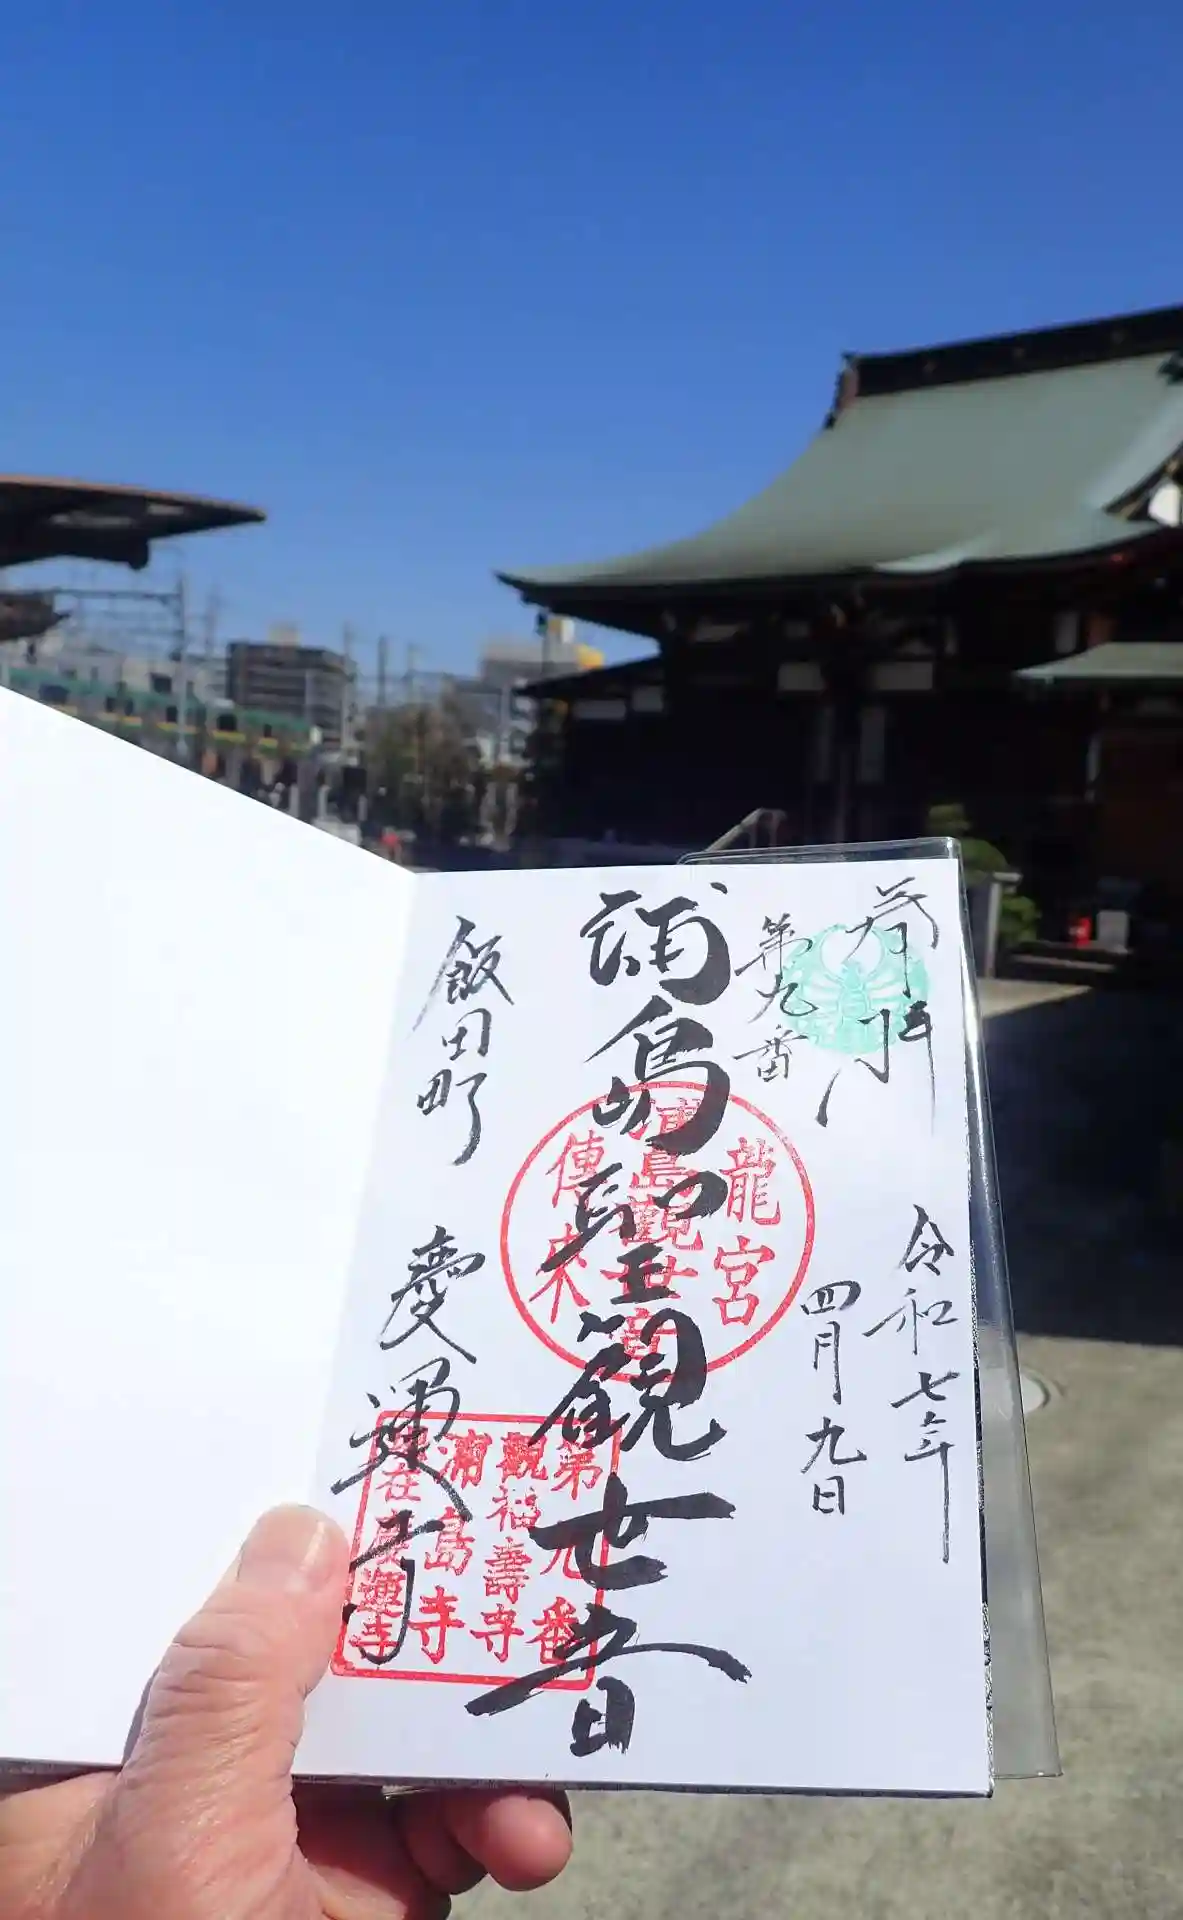 奉拝
令和七年
四月九日
第九番
浦島聖観世音
龍宮
浦島観世音
傳来
第九番
観福壽寺
浦島寺
在慶運寺
飯田町
慶運寺